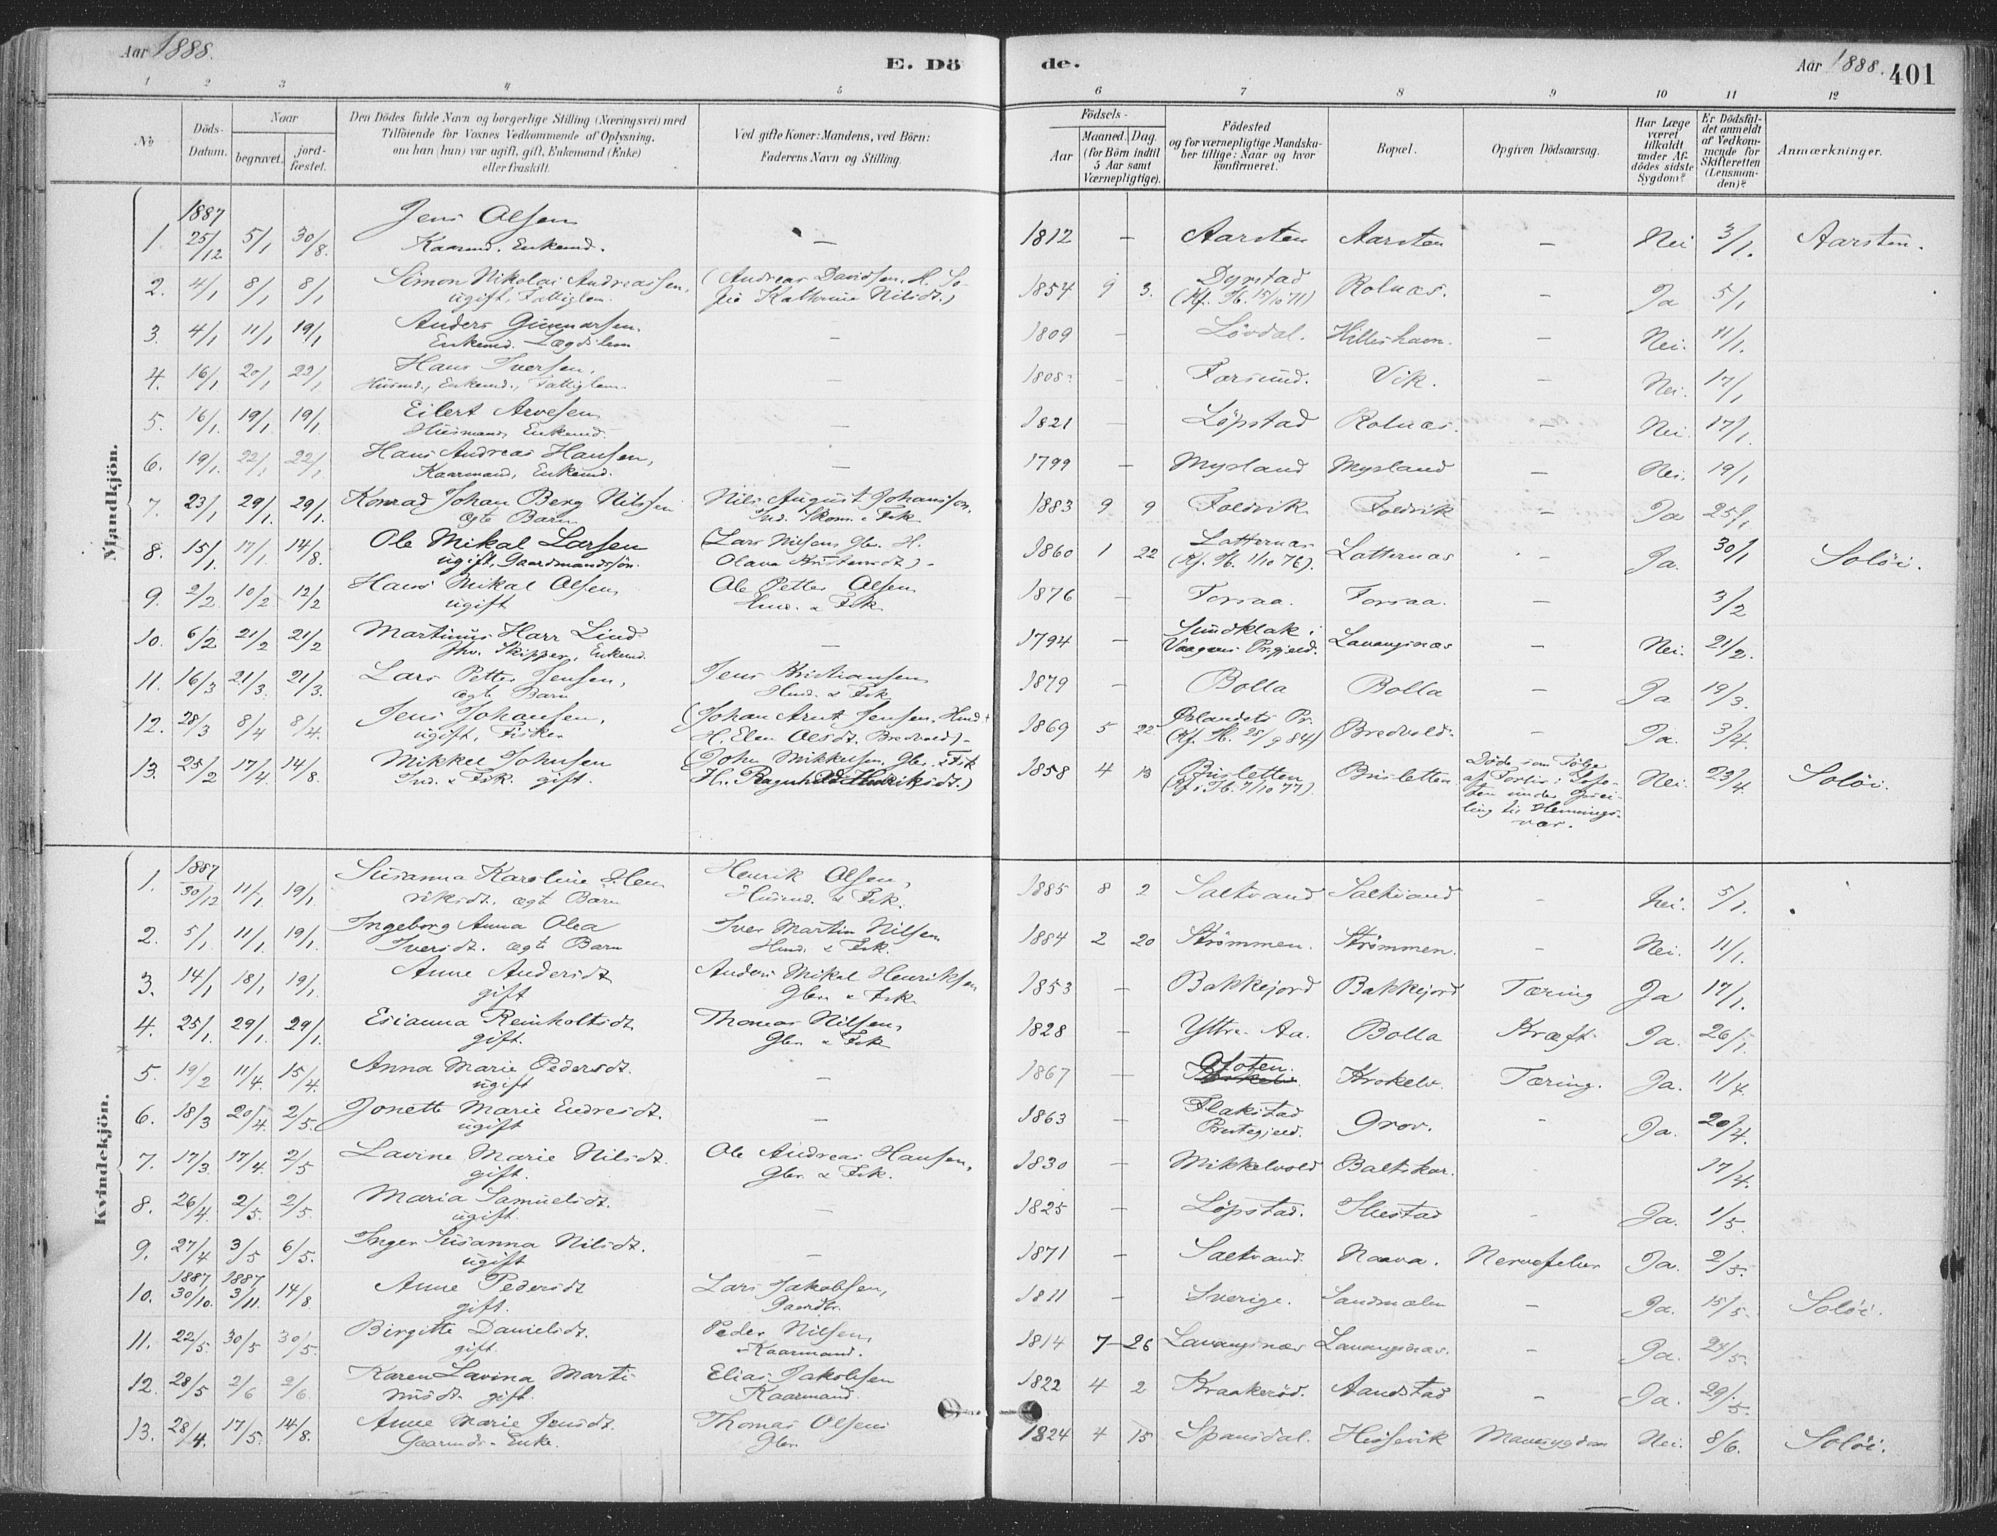 Aar 1888.
E. Dö
de.
Aar 1888.
401
1 2 3 4 5 6 7 8 9 10 11 12
No
Döds-
Datum.
Naar
begravet.
jord-
fæstet.
Den Dödes fulde Navn og borgerlige Stilling (Næringsvei) med
Tilföiende for Voxnes Vedkommende af Oplysning,
om han (hun) var ugift, gift, Enkemand (Enke)
eller fraskilt.
Ved gifte Koner: Mandens, ved Börn:
Faderens Navn og Stilling.
Födsels-
Aar
Maaned. Dag.
(for Börn indtil
5 Aar samt
Værnepligtige).
Födested
og for værnepligtige Mandska-
ber tillige: Naar og hvor
konfirmeret.
Bopæl.
Opgiven Dödsaarsag.
Har Læge
været
tilkaldt
under Af-
dödes sidste
Sygdom?
Er Dödsfal-
det anmeldt
af Vedkom-
mende for
Skifteretten
(Lensman-
den)?
Anmærkninger.
Mandkjön.
1887
1. 25/12 5/1 30/8. Jens Olsen — 1812 — Aarsten Aarsten — Nei 3/1. Aarsten.
Kaarmd. Enkemd.
2. 4/1 8/1 8/1 Simon Nikolai Andreassen, (Andreas Davidsen. H. So- 1854 9 3. Dyrstad Rolnæs. — Ja 5/1
ugift, Fattiglem. fie Kathrine Nilsdt.) (Kf. Ib. 15/10 71)
3. 4/1 11/1 19/1 Anders Gunnarsen. — 1809 — Lövdal. Hilleshavn. — Nei. 11/1.
Enkemd. Lægdslem
4. 16/1 20/1 22/1 Hans Iversen, — 1808. — Forsund. Vik. — Nei. 17/1
Husmd., Enkemd., Fattiglem.
5. 16/1. 19/1. 19/1. Eilert Arvesen — 1821 — Löpstad Rolnæs. — Nei. 17/1.
Husmand, Enkemd.
6. 19/1. 22/1 22/1 Hans Andreas Hansen, — 1799 — Mysland Mysland — Nei. 19/1
Kaarmand, Enkemd.
7. 23/1 29/1. 29/1. Konrad Johan Berg Nilssen Nils August Johansson, 1883 9 9 Foldvik Foldvik — Ja 25/1
ægte Barn Ind. Skom. & Fsk.
8. 15/1. 17/1. 14/8. Ole Mikal Larsen (Lars Nilsens Gbr. H. 1860 1 22 Latternæs Latternæs — Ja. 30/1 Soløi.
ugift, Gaardmandssön. Olava Kristensdt.) (Kf. Ib. 1/10 76).
9. 2/2 10/2 12/2 Hans Mikal Olsen, Ole Petter Olsen 1876 Forsaa. Forsaa. — 3/2
ugift Hmd. & Fsk
10. 6/2 21/2 21/2 Martinus Harr Lind — 1794 — Sundklak i Lavangsnæs — Nei. 21/2.
fhv. Skipper, Enkemd. Vaagans Prgjeld.
11. 16/3 21/3. 21/3. Lars Petter Jensen, Jens Kristiansen 1879 — Bolla Bolla — Ja 19/3.
ægte Barn Hmd. & Fsk.
12. 28/3 8/4 8/4. Jens Johansen, (Johan Arnt Jensen, Hmd. 1869 5 22 Ørlandets Pr. Bredvold. — Ja. 3/4.
ugift, Fisker H. Elen Olsdt. Bredvold) (Kf. Ib. 25/9 84)
13. 25/2 17/4 14/8. Mikkel Johnsen (John Mikkelsen Gbr. & Fsk 1858 4 13 Brisletten Brisletten Döde som Fölge Nei. 23/4. Soløi.
Ind. & Fsk. gift. H. Ragnhild Henriksdt.) (Kf. i Ib. 7/10 77). af Forlis i Lofo-
ten under
ling til Hennings-
vær.
Kvindekjön.
1887
1. 30/12 11/1 19/1. Susanna Karoline Hen Henrik Olsen, 1885 8 2 Saltvand Saltvand — Nei. 5/1.
riksdt. ægte Barn Husmd. & Fsk.
2. 5/1. 11/1. 19/1 Ingeborg Anna Olea Iver Martin Nilsen 1884 2 20 Strömmen. Strömmen. — Nei. 11/1.
Iversdt. ægte Barn Hmd. & Fsk.
3. 14/1 18/1 19/1. Anne Andersdt. Anders Mikal Henriksen 1853 — Bakkejord Bakkejord Tæring Ja 17/1.
gift Gbr. & Fsk
4. 25/1. 29/1. 29/1. Esianna Reinholtsdt. Thomas Nilsen, 1828 — Yttre-Aa. Bolla Kræft Ja. 26/1.
gift. Gbr. & Fsk
5. 19/2 11/4. 15/4. Anna Marie Pedersdt. — 1867 — Ofoten. Krokelv. Tæring. Ja. 11/4
ugift
6. 18/3 20/4. 2/5. Jonette Marie Endresdt. — 1863 — Flakstad Grov. — Ja. 20/4.
ugift Prestegjeld.
7. 17/3. 17/4. 2/5 Lavine Marie Nilsdt. Ole Andreas Hansen, 1830 — Mikkelvold Baltskar. 17/4.
gift. Gbr. & Fsk.
8. 26/4. 2/5. 2/5. Maria Samuelsdt. — 1825 — Löpstad. Ilbestad — Ja. 1/5.
ugift.
9. 27/4 3/5 6/5. Inger Susanna Nilsdt. — 1871 — Saltvand. Naava. Nervefeber Ja. 2/5.
ugift
1887 1887
10. 30/10. 3/11. 14/8 Anne Pedersdt Lars Jakobsen, 1811 — Sverige. Sandmælen — Ja. 15/5. Soløi.
gift. Gaardbr.
11. 22/5. 30/5 30/5. Birgitte Danielsdt. Peder Nilsen, 1814 7 26 Lavangsnæs Lavangsnæs. — Ja. 24/5.
gift. Kaarmand.
12. 28/5 2/6 2/6. Karen Lavina Marti Elias Jakobsen 1822 4 2 Kraakeröd. Aandstad — Ja. 29/5.
nusdt. gift. Kaarmand.
13. 28/4. 17/5. 14/8. Anne Marie Jensdt. Thomas Olsens 1824 4 15 Spansdal. Hesjevik Mavesygdom Nei. 8/6. Soløi.
Gaarmds. Enke. Gbr.